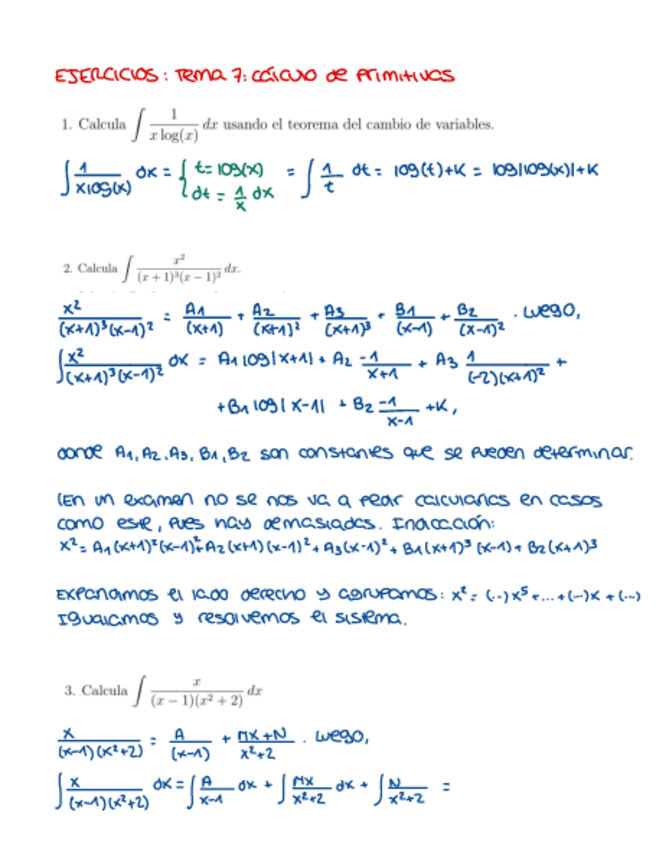 EJERCICIOS: TEMA 7: CÁLCULO DE PRIMITIVAS
1. Calcula ∫ 1/(x log(x)) dx usando el teorema del cambio de variables.
∫ 1/(x log(x)) dx = { t = log(x) dt = 1/x dx = ∫ 1/t dt = log(t)+K = log|log(x)|+K
2. Calcula ∫ x²/((x + 1)³(x − 1)²) dx.
x²/((x+1)³(x-1)²) = A1/(x+1) + A2/(x+1)² + A3/(x+1)³ + B1/(x-1) + B2/(x-1)². Luego,
∫ x²/((x+1)³(x-1)²) dx = A1 log|x+1| + A2 -1/(x+1) + A3 1/((-2)(x+1)²) +
+B1 log|x-1| + B2 -1/(x-1) +K,
donde A1, A2, A3, B1, B2 son constantes que se pueden determinar.
(En un examen no se nos va a pedir calcularlas en casos
como este, pues hay demasiadas. Indicación:
x² = A1(x+1)²(x-1)² + A2(x+1)(x-1)² + A3(x-1)² + B1(x+1)³(x-1) + B2(x+1)³
Expandimos el lado derecho y agrupamos: x² = (...)x⁵ + ... + (...)x + (...)
Igualamos y resolvemos el sistema.
3. Calcula ∫ x/((x − 1)(x² + 2)) dx
x/((x-1)(x²+2)) = A/(x-1) + (Mx+N)/(x²+2). Luego,
∫ x/((x-1)(x²+2)) dx = ∫ A/(x-1) dx + ∫ Mx/(x²+2) dx + ∫ N/(x²+2) =